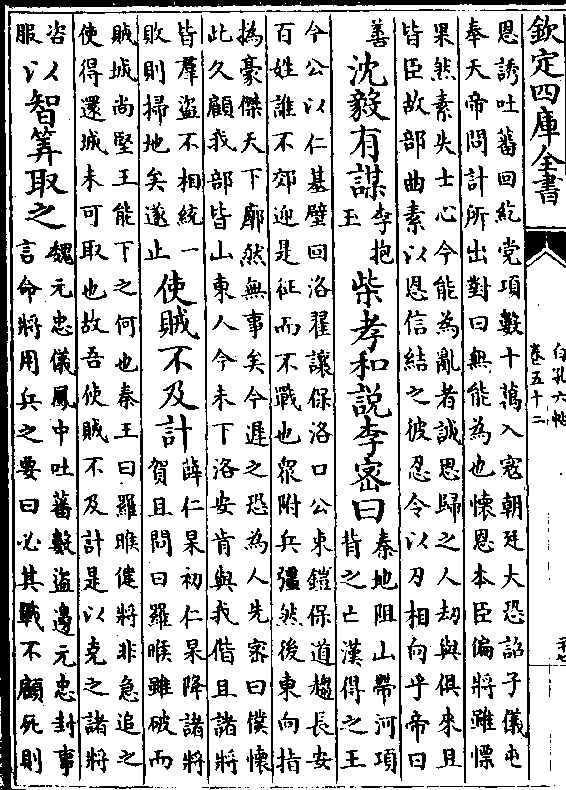 欽定四庫全書
白孔六帖
卷五十二
恩誘吐蕃回紇党項數十萬入寇朝廷大恐詔子儀屯
奉天帝問計所出對曰無能為也懷恩本臣偏將雖慓
果然素失士心今能為亂者誠思歸之人劫與俱來且
皆臣故部曲素以恩信結之彼忍令以刃相向乎帝曰
善
沈毅有謀
李抱
王
柴孝和說李密曰
秦地阻山帶河項
背之亡漢得之王
今公以仁基壁回洛翟讓保洛口公束鎧保道趨長安
百姓誰不郊迎是征而不戰也衆附兵彊然後東向指
撝豪傑天下廓然無事矣今遲之恐為人先密曰僕懷
此久顧我部皆山東人今未下洛安肯與我偕且諸將
皆羣盜不相統一
敗則掃地矣遂止
使賊不及計
薛仁杲初仁杲降諸將
賀且問曰羅㬋雖破而
賊城尚堅王能下之何也秦王曰羅㬋健將非急追之
使得還城未可取也故吾使賊不及計是以克之諸將
咨
服
以智筭取之
魏元忠儀鳳中吐蕃數盜邊元忠封事
言命將用兵之要曰必其戰不顧死則